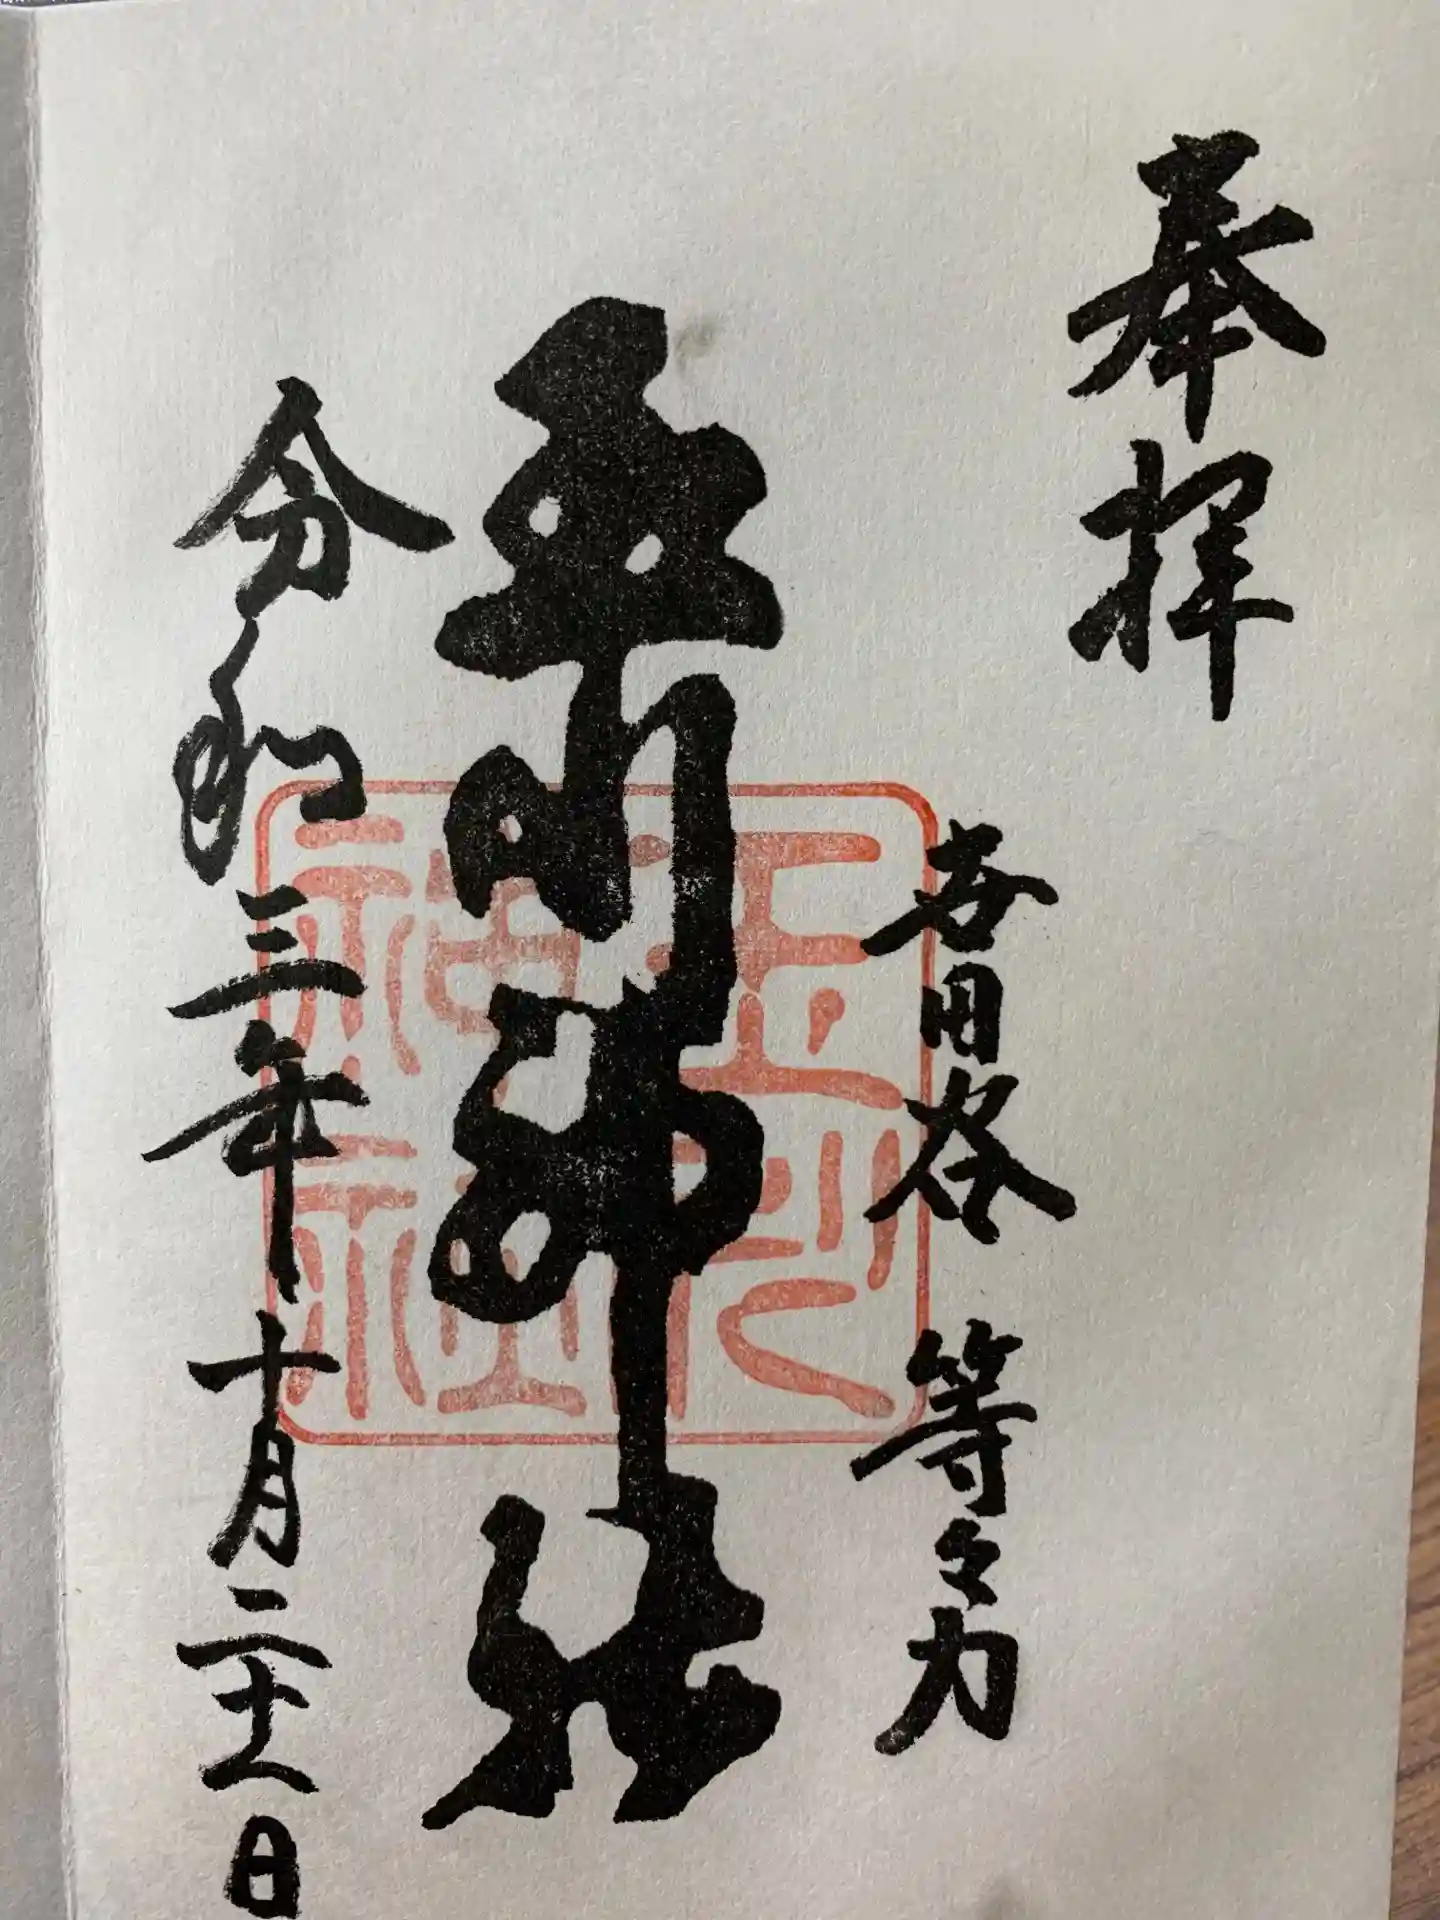 奉拝
世田谷 等々力
玉川神社
令和三年十月二十八日